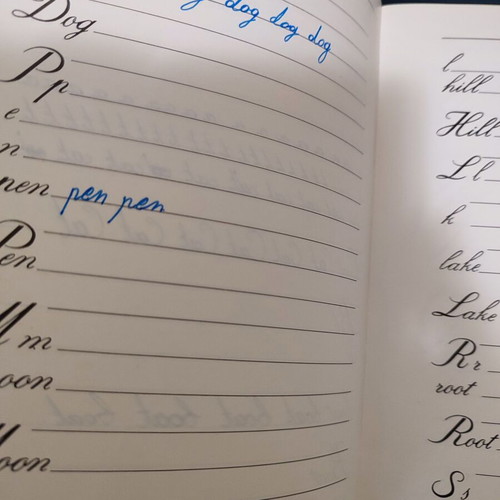 dog dog dog
Dog
P p
e
n
pen pen pen
Pen
M m
oon
oon
l
hill
Hill
L l
k
lake
Lake
R r
root
Root
S s